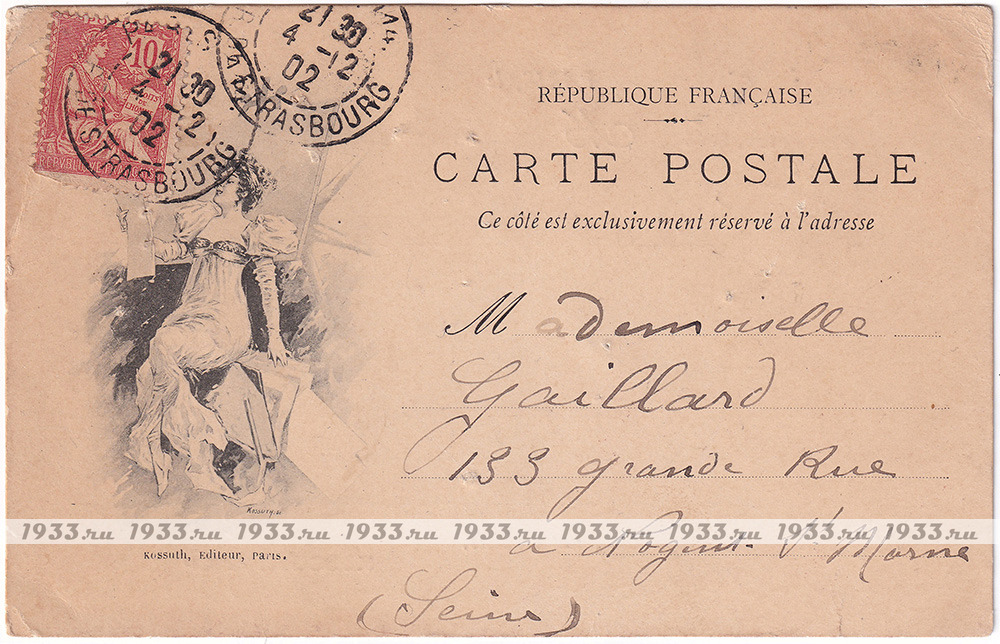 10
RÉPUBLIQUE FRANÇAISE
21 30
4 -12
02
STRASBOURG
21 30
4 -12
02
STRASBOURG
RÉPUBLIQUE FRANÇAISE
CARTE POSTALE
Ce côté est exclusivement réservé à l'adresse
Mademoiselle
Gaillard
133 grande Rue
à Nogent s/ Marne
(Seine)
KOSSUTH
Kossuth, Editeur, Paris.
1933.ru 1933.ru 1933.ru 1933.ru 1933.ru 1933.ru 1933.ru 1933.ru 1933.ru